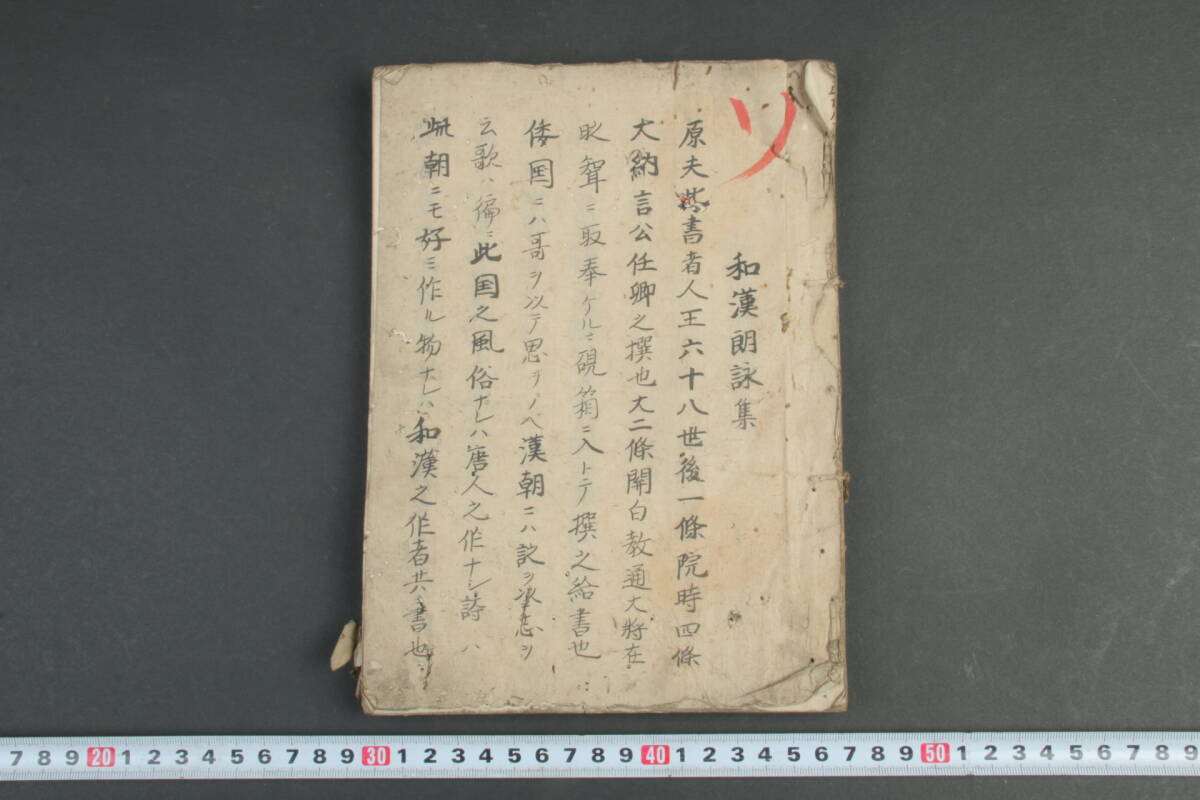 ソ
和漢朗詠集
原夫此書者人王六十八世後一條院時四條
大納言公任卿之撰也大二條関白教通大将在
聟ニ取奉ケルニ硯箱ニ入トテ撰之給書也
倭国ニハ哥ヲ以テ思ヲノヘ漢朝ニハ ヲ ヲ
云歌ハ偏ニ此国之風俗ナレハ唐人之作ナシ詩ハ
此朝ニモ好ミ作ル物ナレハ和漢之作者共書也
7 8 9 20 1 2 3 4 5 6 7 8 9 30 1 2 3 4 5 6 7 8 9 40 1 2 3 4 5 6 7 8 9 50 1 2 3 4 5 6 7 8 9